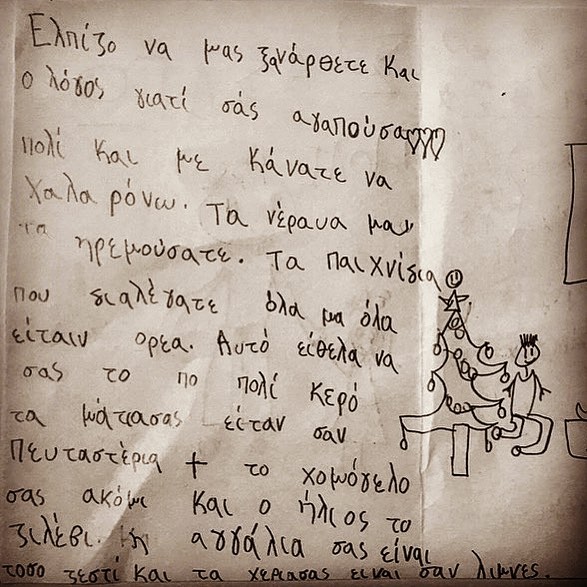 Ελπίζο να μας ξανάρθετε και
ο λόγος γιατί σάς αγαπούσα♡♡♡
πολί και με κάνατε να
χαλα ρόνω. Τα νέραυα μου
τα ηρεμούσατε. Τα παιχνίδια
που διαλέγατε όλα μα όλα
είταιν ορεα. Αυτό είθελα να
σας το πο πολί κερό
τα μάτιασας είταν σαν
πευταστέρια + το χομόγελο
σας ακόμι και ο ήλιος το
ζιλέβι. Η αγγάλια σας είναι
τοσο ζεστί και τα χεριασας ειναι σαν λιμνες.